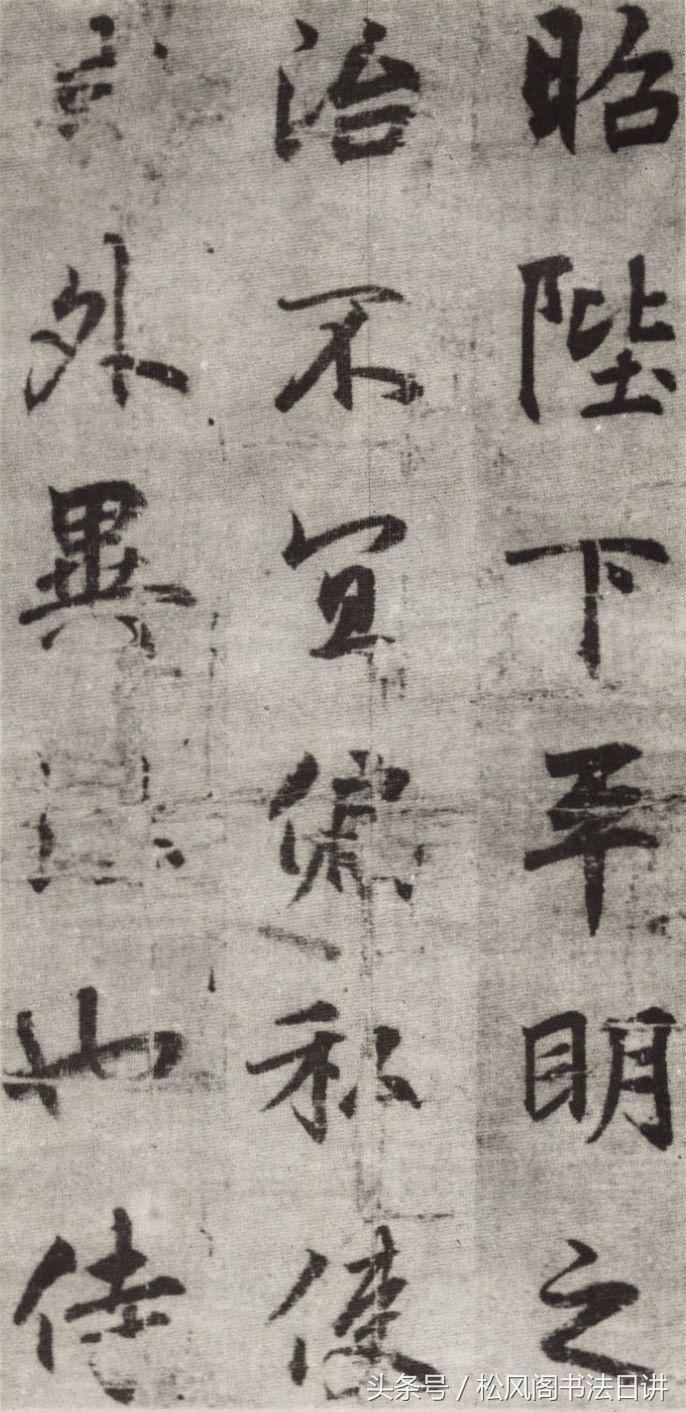 昭陛下平明之
治不宜偏私使
外異也侍
头条号 / 松风阁书法日讲